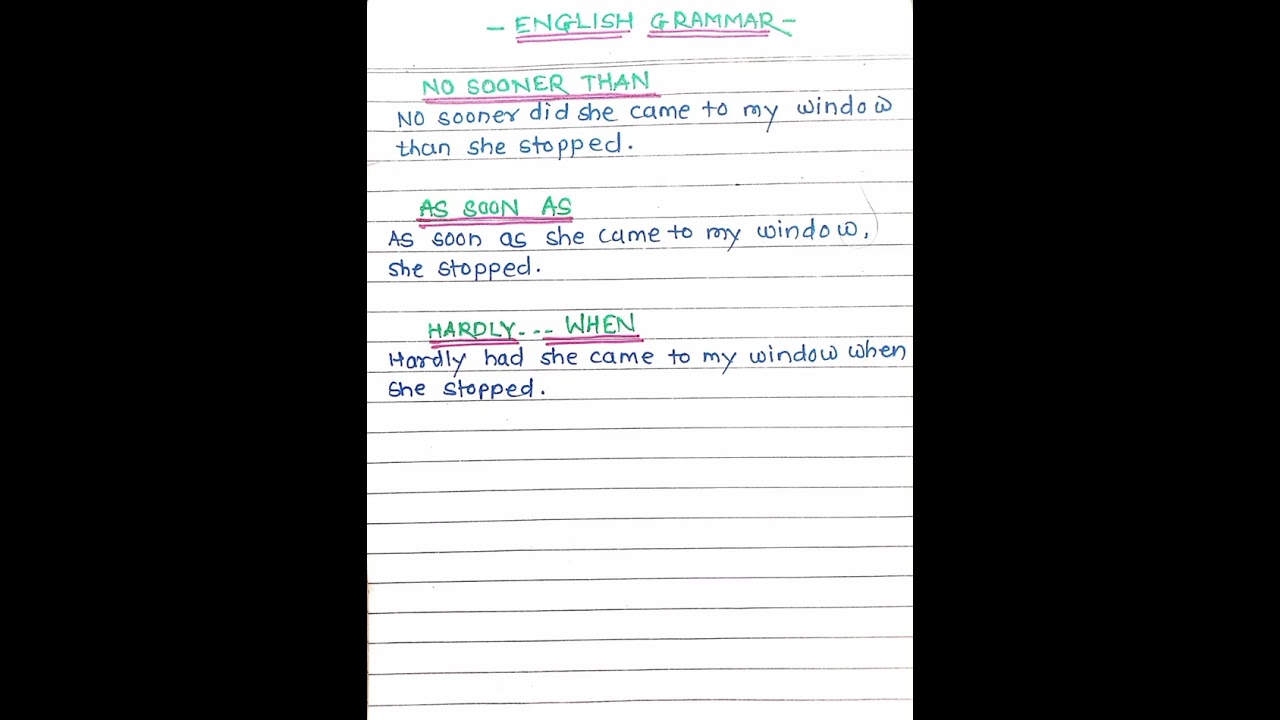 - ENGLISH GRAMMAR -
NO SOONER THAN
No sooner did she came to my window
than she stopped.
AS SOON AS
As soon as she came to my window,
she stopped.
HARDLY--- WHEN
Hardly had she came to my window when
she stopped.